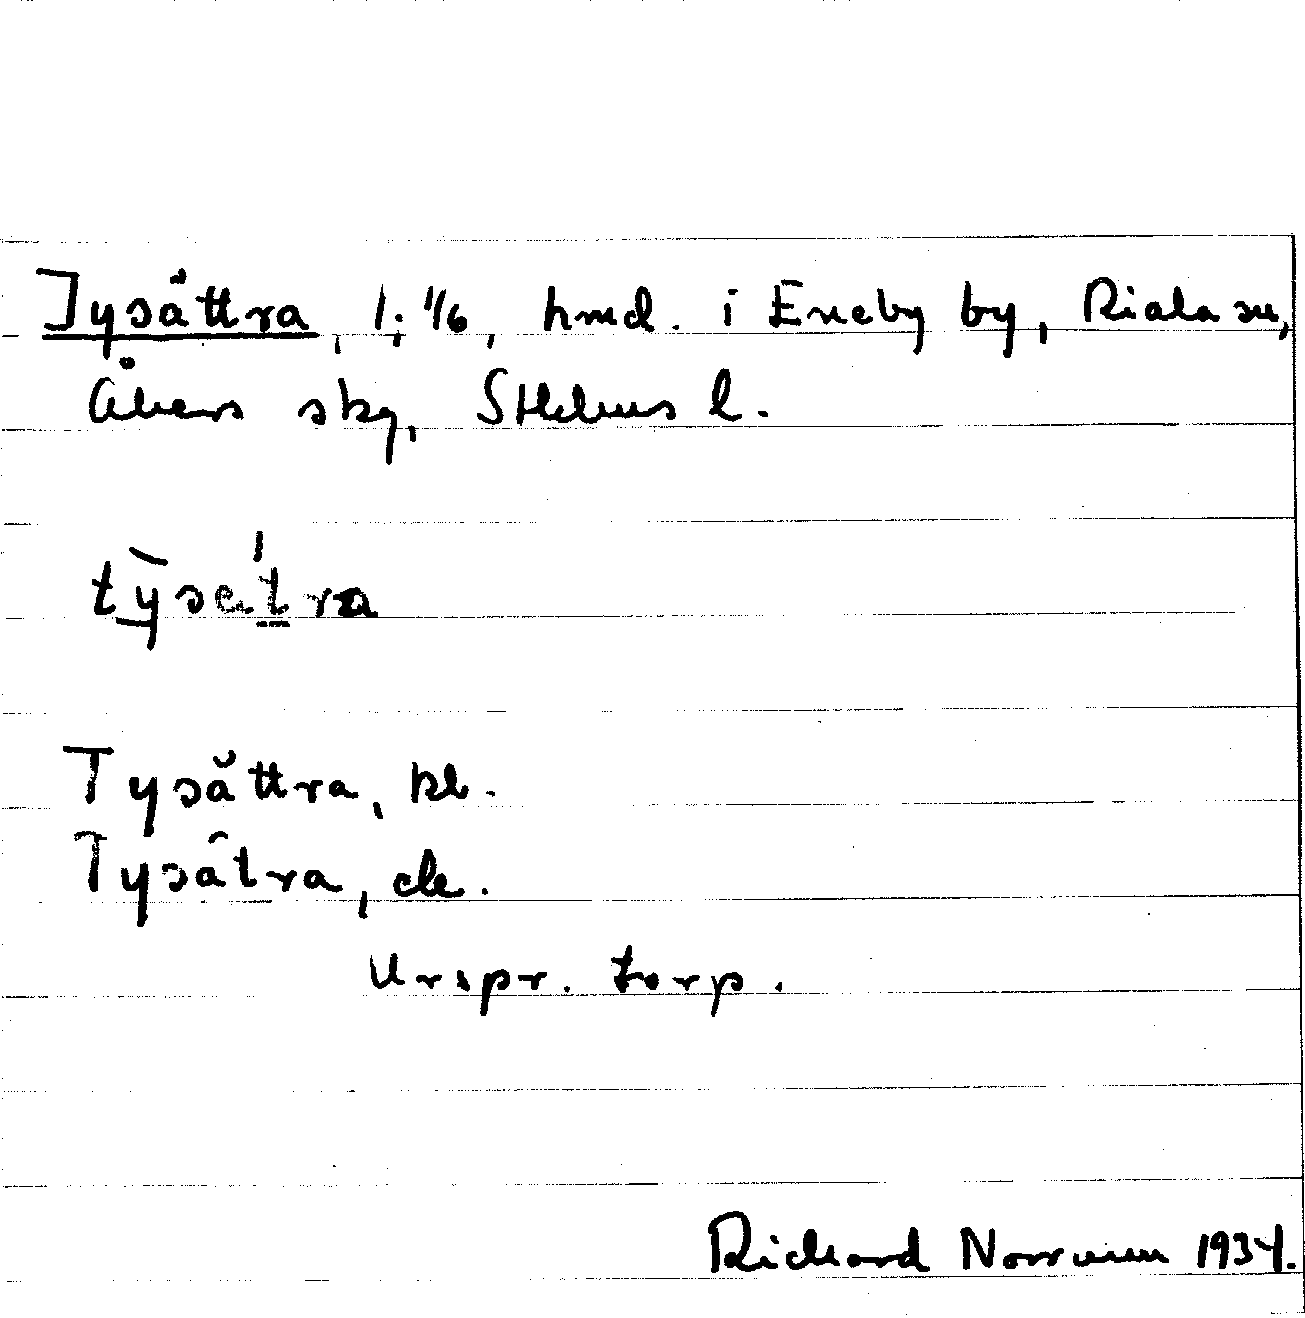 Tysättra, 1:1/6, hmd. i Eneby by, Riala sn,
Åkers skg, Sthlms l.
Tysättra, kb.
Tysätra, ek.
Urspr. torp.
Richard Norrman 1934.